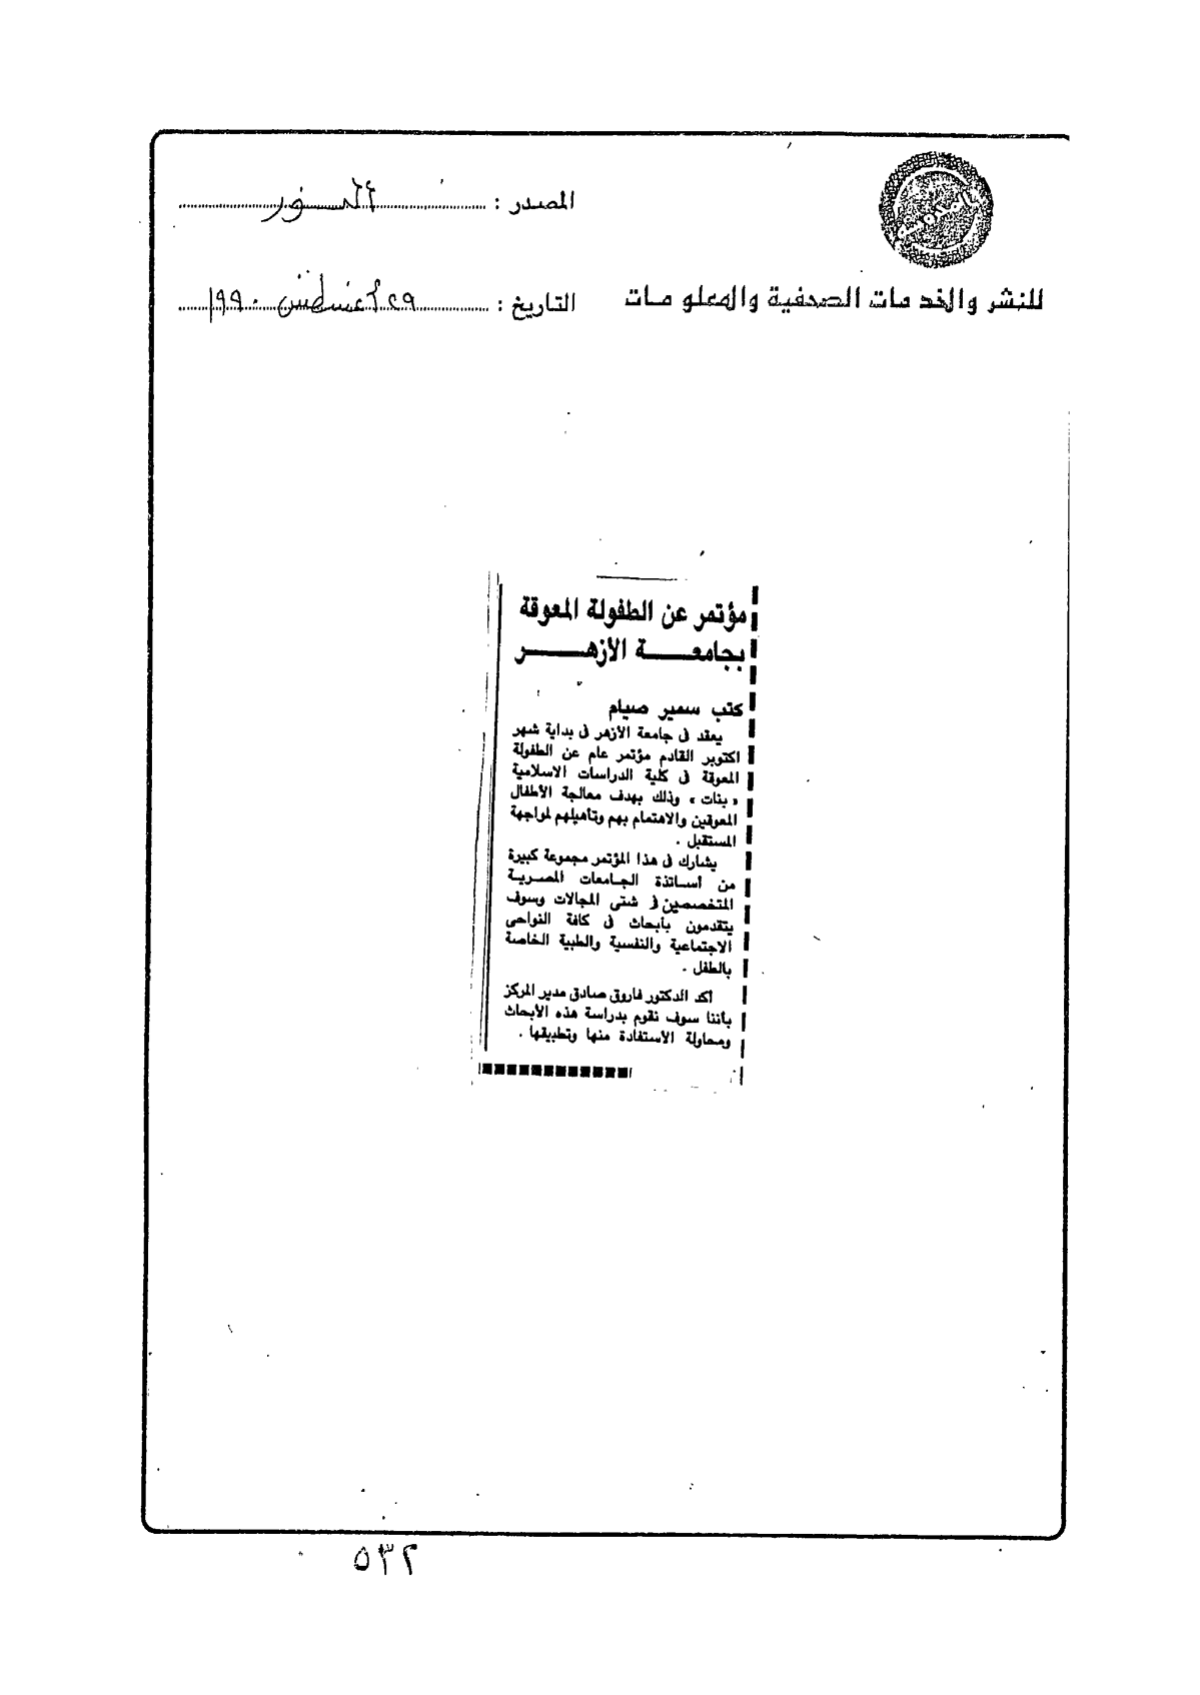 المصدر :
للنشر والخدمات الصحفية والمعلومات
التاريخ : ٢٩ أغسطس ١٩٩٠
مؤتمر عن الطفولة المعوقة
بجامعة الأزهر
كتب سمير صيام
يعقد فى جامعة الأزهر فى بداية شهر
اكتوبر القادم مؤتمر عام عن الطفولة
المعوقة فى كلية الدراسات الاسلامية
« بنات » وذلك بهدف معالجة الأطفال
المعوقين والاهتمام بهم وتأهيلهم لمواجهة
المستقبل .
يشارك فى هذا المؤتمر مجموعة كبيرة
من أساتذة الجامعات المصرية
المتخصصين فى شتى المجالات وسوف
يتقدمون بأبحاث فى كافة النواحى
الاجتماعية والنفسية والطبية الخاصة
بالطفل .
أكد الدكتور فاروق صادق مدير المركز
بأننا سوف نقوم بدراسة هذه الأبحاث
ومحاولة الأستفادة منها وتطبيقها .
٥٣٢